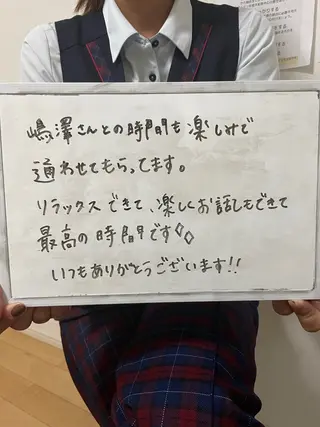 嶋澤さんとの時間も楽しみで
通わせてもらってます。
リラックスできて、楽しくお話しもできて
最高の時間です◇◇
いつもありがとうございます!!